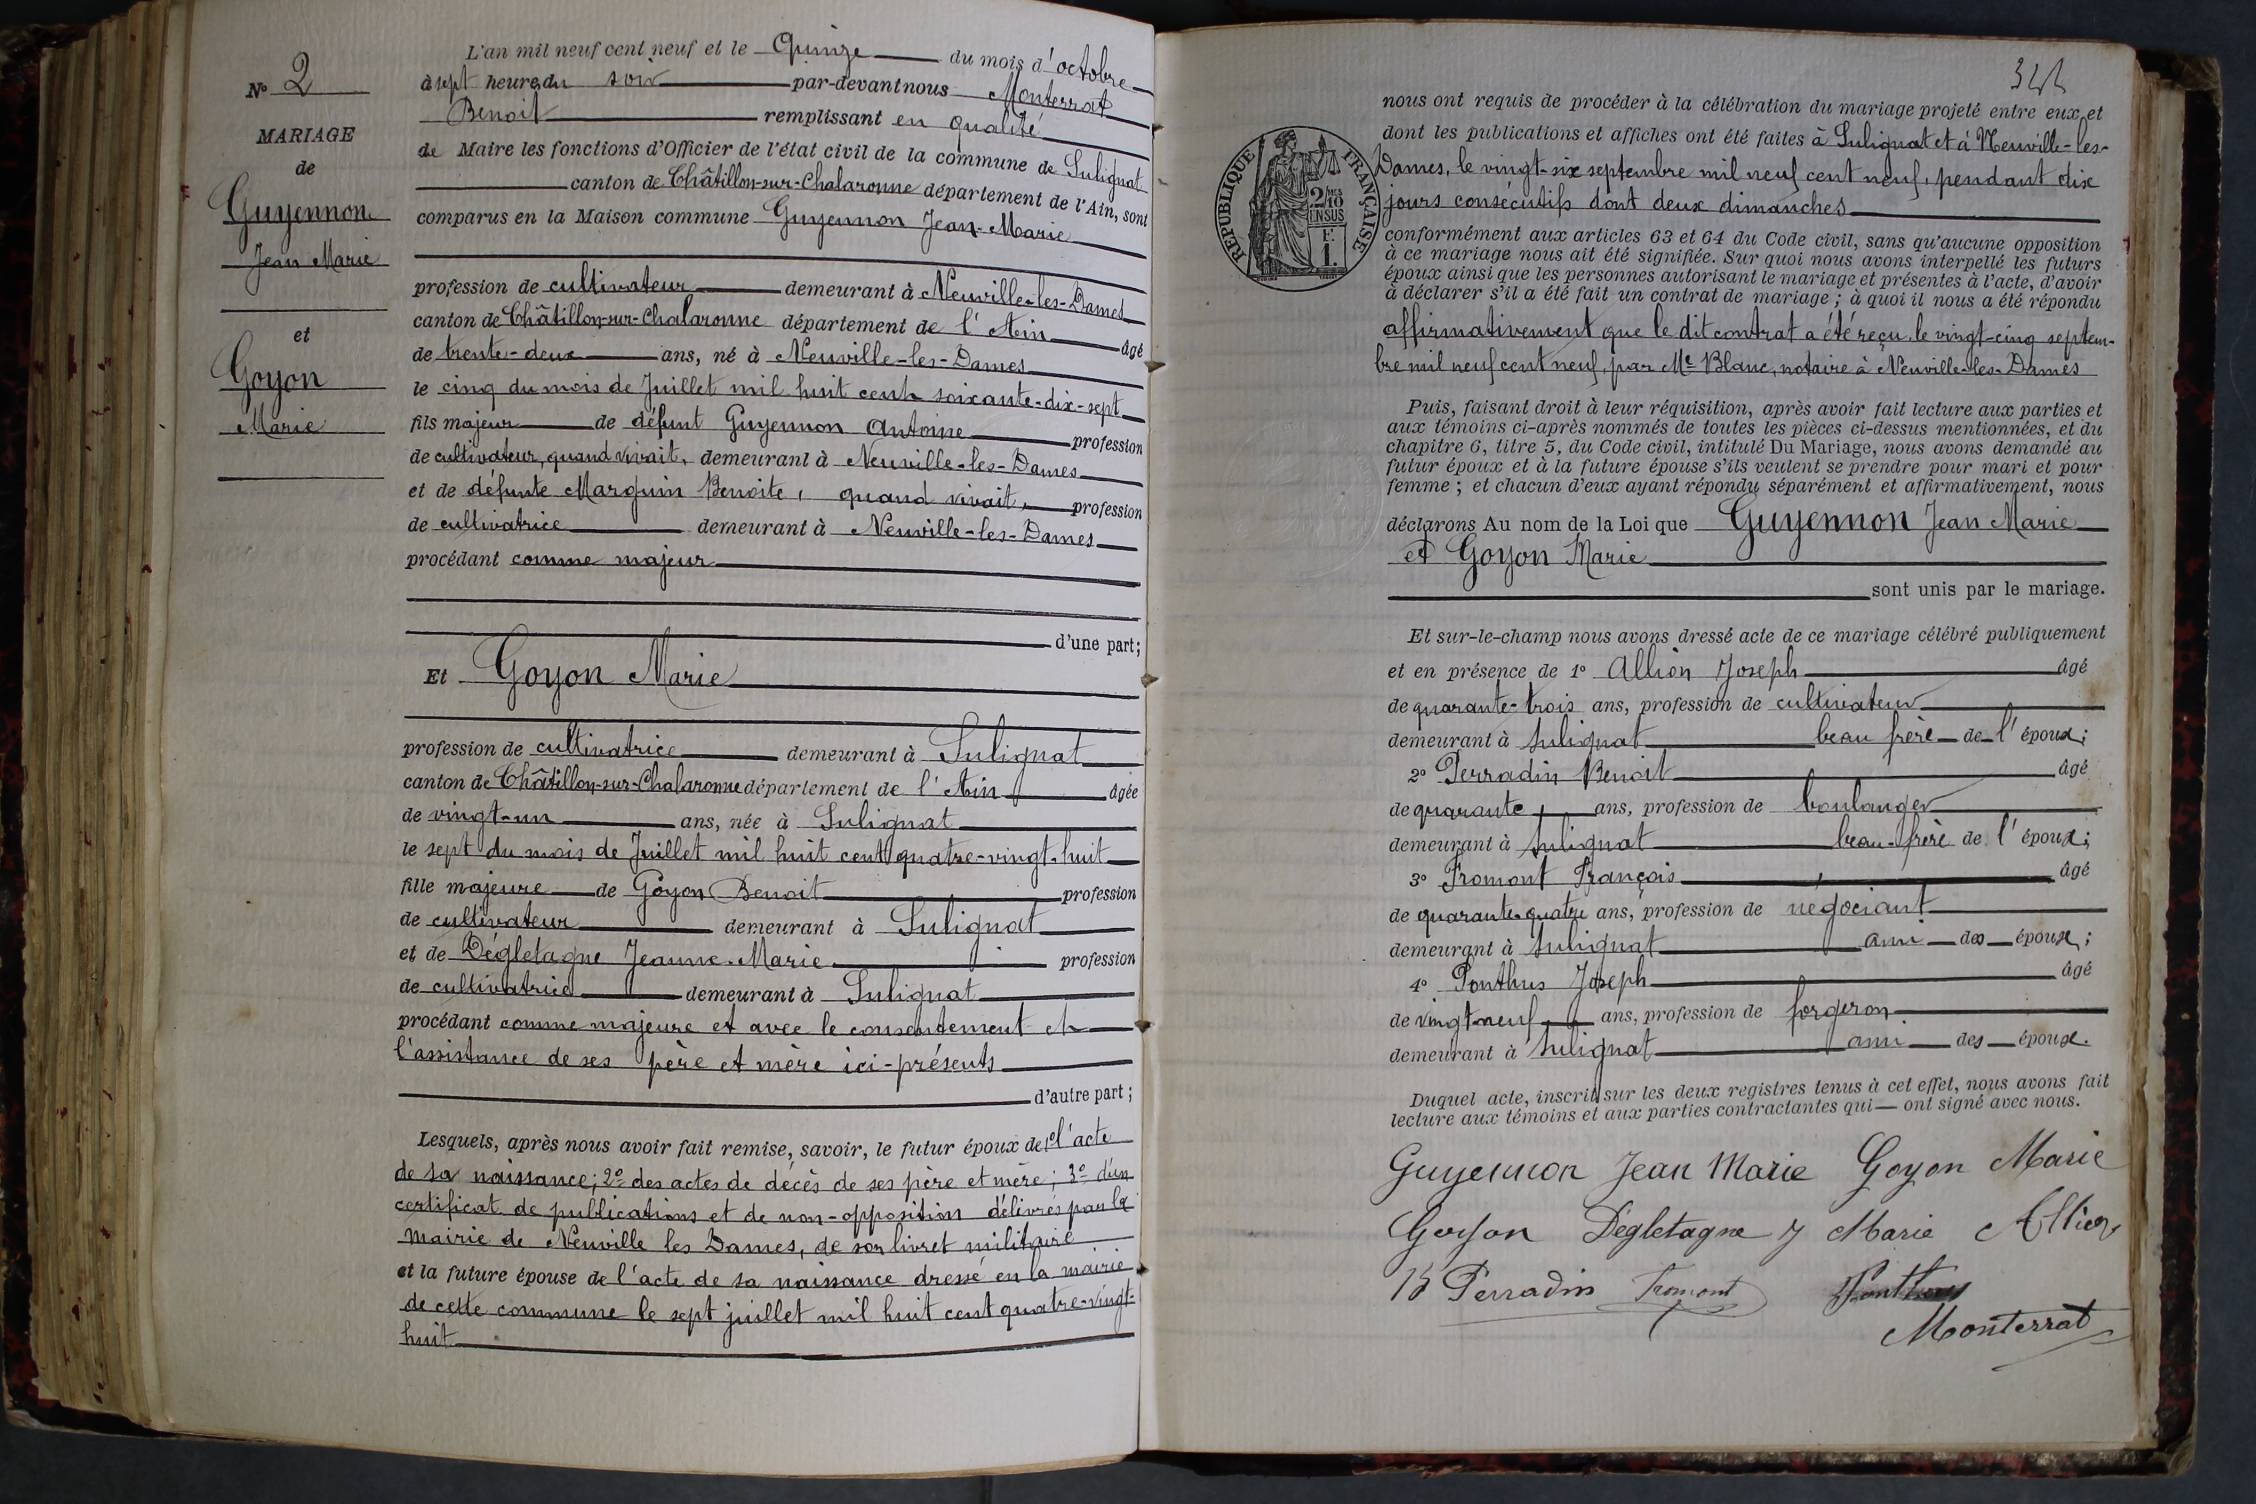 N° 2
MARIAGE
de
Guyennon
Jean Marie
et
Goyon
Marie
L'an mil neuf cent neuf et le Quinze du mois d'octobre
à sept heures du soir par-devant nous Monterrat
Benoit remplissant en qualité
de Maire les fonctions d'Officier de l'état civil de la commune de Sulignat
canton de Châtillon-sur-Chalaronne département de l'Ain, sont
comparus en la Maison commune Guyennon Jean-Marie
profession de cultivateur demeurant à Neuville-les-Dames
canton de Châtillon-sur-Chalaronne département de l'Ain âgé
de trente-deux ans, né à Neuville-les-Dames
le cinq du mois de Juillet mil huit cent soixante-dix-sept
fils majeur de défunt Guyennon Antoine profession
de cultivateur, quand vivait, demeurant à Neuville-les-Dames
et de défunte Marguin Benoite, quand vivait, profession
de cultivatrice demeurant à Neuville-les-Dames
procédant comme majeur
d'une part;
Et Goyon Marie
profession de cultivatrice demeurant à Sulignat
canton de Châtillon-sur-Chalaronne département de l'Ain âgée
de vingt-un ans, née à Sulignat
le sept du mois de Juillet mil huit cent quatre-vingt-huit
fille majeure de Goyon Benoit profession
de cultivateur demeurant à Sulignat
et de Dégletagne Jeanne-Marie profession
de cultivatrice demeurant à Sulignat
procédant comme majeure et avec le consentement et
l'assistance de ses père et mère ici-présents
d'autre part;
Lesquels, après nous avoir fait remise, savoir, le futur époux de 1° l'acte
de sa naissance; 2° des actes de décès de ses père et mère; 3° d'un
certificat de publications et de non-opposition délivrés par la
mairie de Neuville les Dames, de son livret militaire
et la future épouse de l'acte de sa naissance dressé en la mairie
de cette commune le sept juillet mil huit cent quatre-vingt-
huit
nous ont requis de procéder à la célébration du mariage projeté entre eux et
dont les publications et affiches ont été faites à Sulignat et à Neuville-les-
Dames, le vingt-six septembre mil neuf cent neuf, pendant dix
jours consécutifs dont deux dimanches
RÉPUBLIQUE FRANÇAISE
2/10 MES
EN SUS
F.
1.
conformément aux articles 63 et 64 du Code civil, sans qu'aucune opposition
à ce mariage nous ait été signifiée. Sur quoi nous avons interpellé les futurs
époux ainsi que les personnes autorisant le mariage et présentes à l'acte, d'avoir
à déclarer s'il a été fait un contrat de mariage; à quoi il nous a été répondu
affirmativement que le dit contrat a été reçu le vingt-cinq septem-
bre mil neuf cent neuf, par Me Blanc, notaire à Neuville-les-Dames
Puis, faisant droit à leur réquisition, après avoir fait lecture aux parties et
aux témoins ci-après nommés de toutes les pièces ci-dessus mentionnées, et du
chapitre 6, titre 5, du Code civil, intitulé Du Mariage, nous avons demandé au
futur époux et à la future épouse s'ils veulent se prendre pour mari et pour
femme; et chacun d'eux ayant répondu séparément et affirmativement, nous
déclarons Au nom de la Loi que Guyennon Jean Marie
et Goyon Marie
sont unis par le mariage.
Et sur-le-champ nous avons dressé acte de ce mariage célébré publiquement
et en présence de 1° Allion Joseph âgé
de quarante-trois ans, profession de cultivateur
demeurant à Sulignat beau frère de l'époux;
2° Perradin Benoit âgé
de quarante ans, profession de boulanger
demeurant à Sulignat beau-frère de l'époux;
3° Fromont François âgé
de quarante-quatre ans, profession de négociant
demeurant à Sulignat ami des époux;
4° Ponthus Joseph âgé
de vingt-neuf ans, profession de forgeron
demeurant à Sulignat ami des époux.
Duquel acte, inscrit sur les deux registres tenus à cet effet, nous avons fait
lecture aux témoins et aux parties contractantes qui ont signé avec nous.
Guyennon Jean Marie Goyon Marie
Goyon Dégletagne J Marie Allion
B Perradin Fromont Ponthus
Monterrat